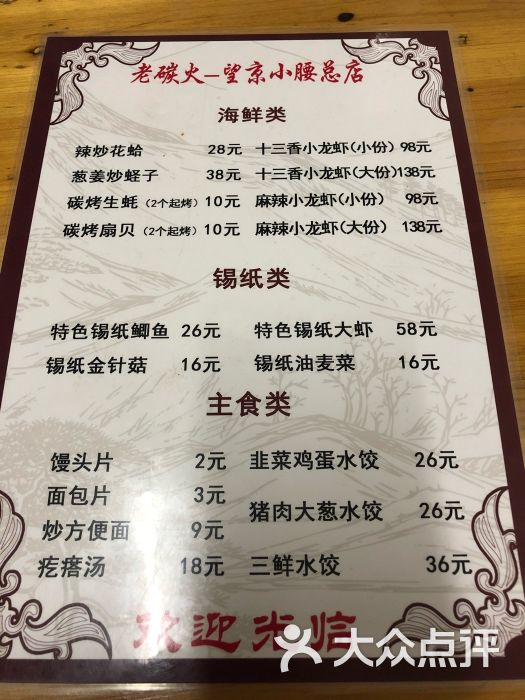 老碳火—望京小腰总店
海鲜类
辣炒花蛤 28元 十三香小龙虾(小份) 98元
葱姜炒蛏子 38元 十三香小龙虾(大份) 138元
碳烤生蚝(2个起烤) 10元 麻辣小龙虾(小份) 98元
碳烤扇贝(2个起烤) 10元 麻辣小龙虾(大份) 138元
锡纸类
特色锡纸鲫鱼 26元 特色锡纸大虾 58元
锡纸金针菇 16元 锡纸油麦菜 16元
主食类
馒头片 2元 韭菜鸡蛋水饺 26元
面包片 3元
猪肉大葱水饺 26元
炒方便面 9元
疙瘩汤 18元 三鲜水饺 36元
欢迎光临
大众点评